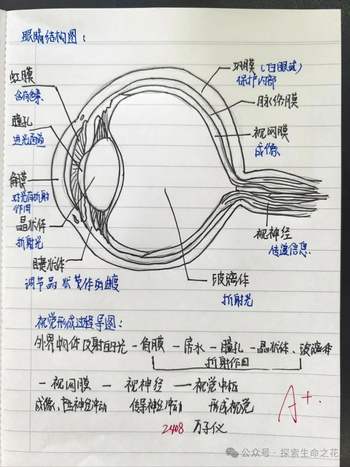 眼睛结构图:
巩膜(白眼球)
保护内部
虹膜
含有色素
脉络膜
瞳孔
进光通道
视网膜
成像
角膜
对光有折射
作用
晶状体
折射光
视神经
传递信息
睫状体
调节晶状体曲度
玻璃体
折射光
视觉形成过程导图:
外界物体反射的光—角膜—房水—瞳孔—晶状体、玻璃体
折射作用
—视网膜—视神经—视觉中枢
成像、神经冲动 传导神经冲动 形成视觉
A+
2408
公众号·探索生命之花